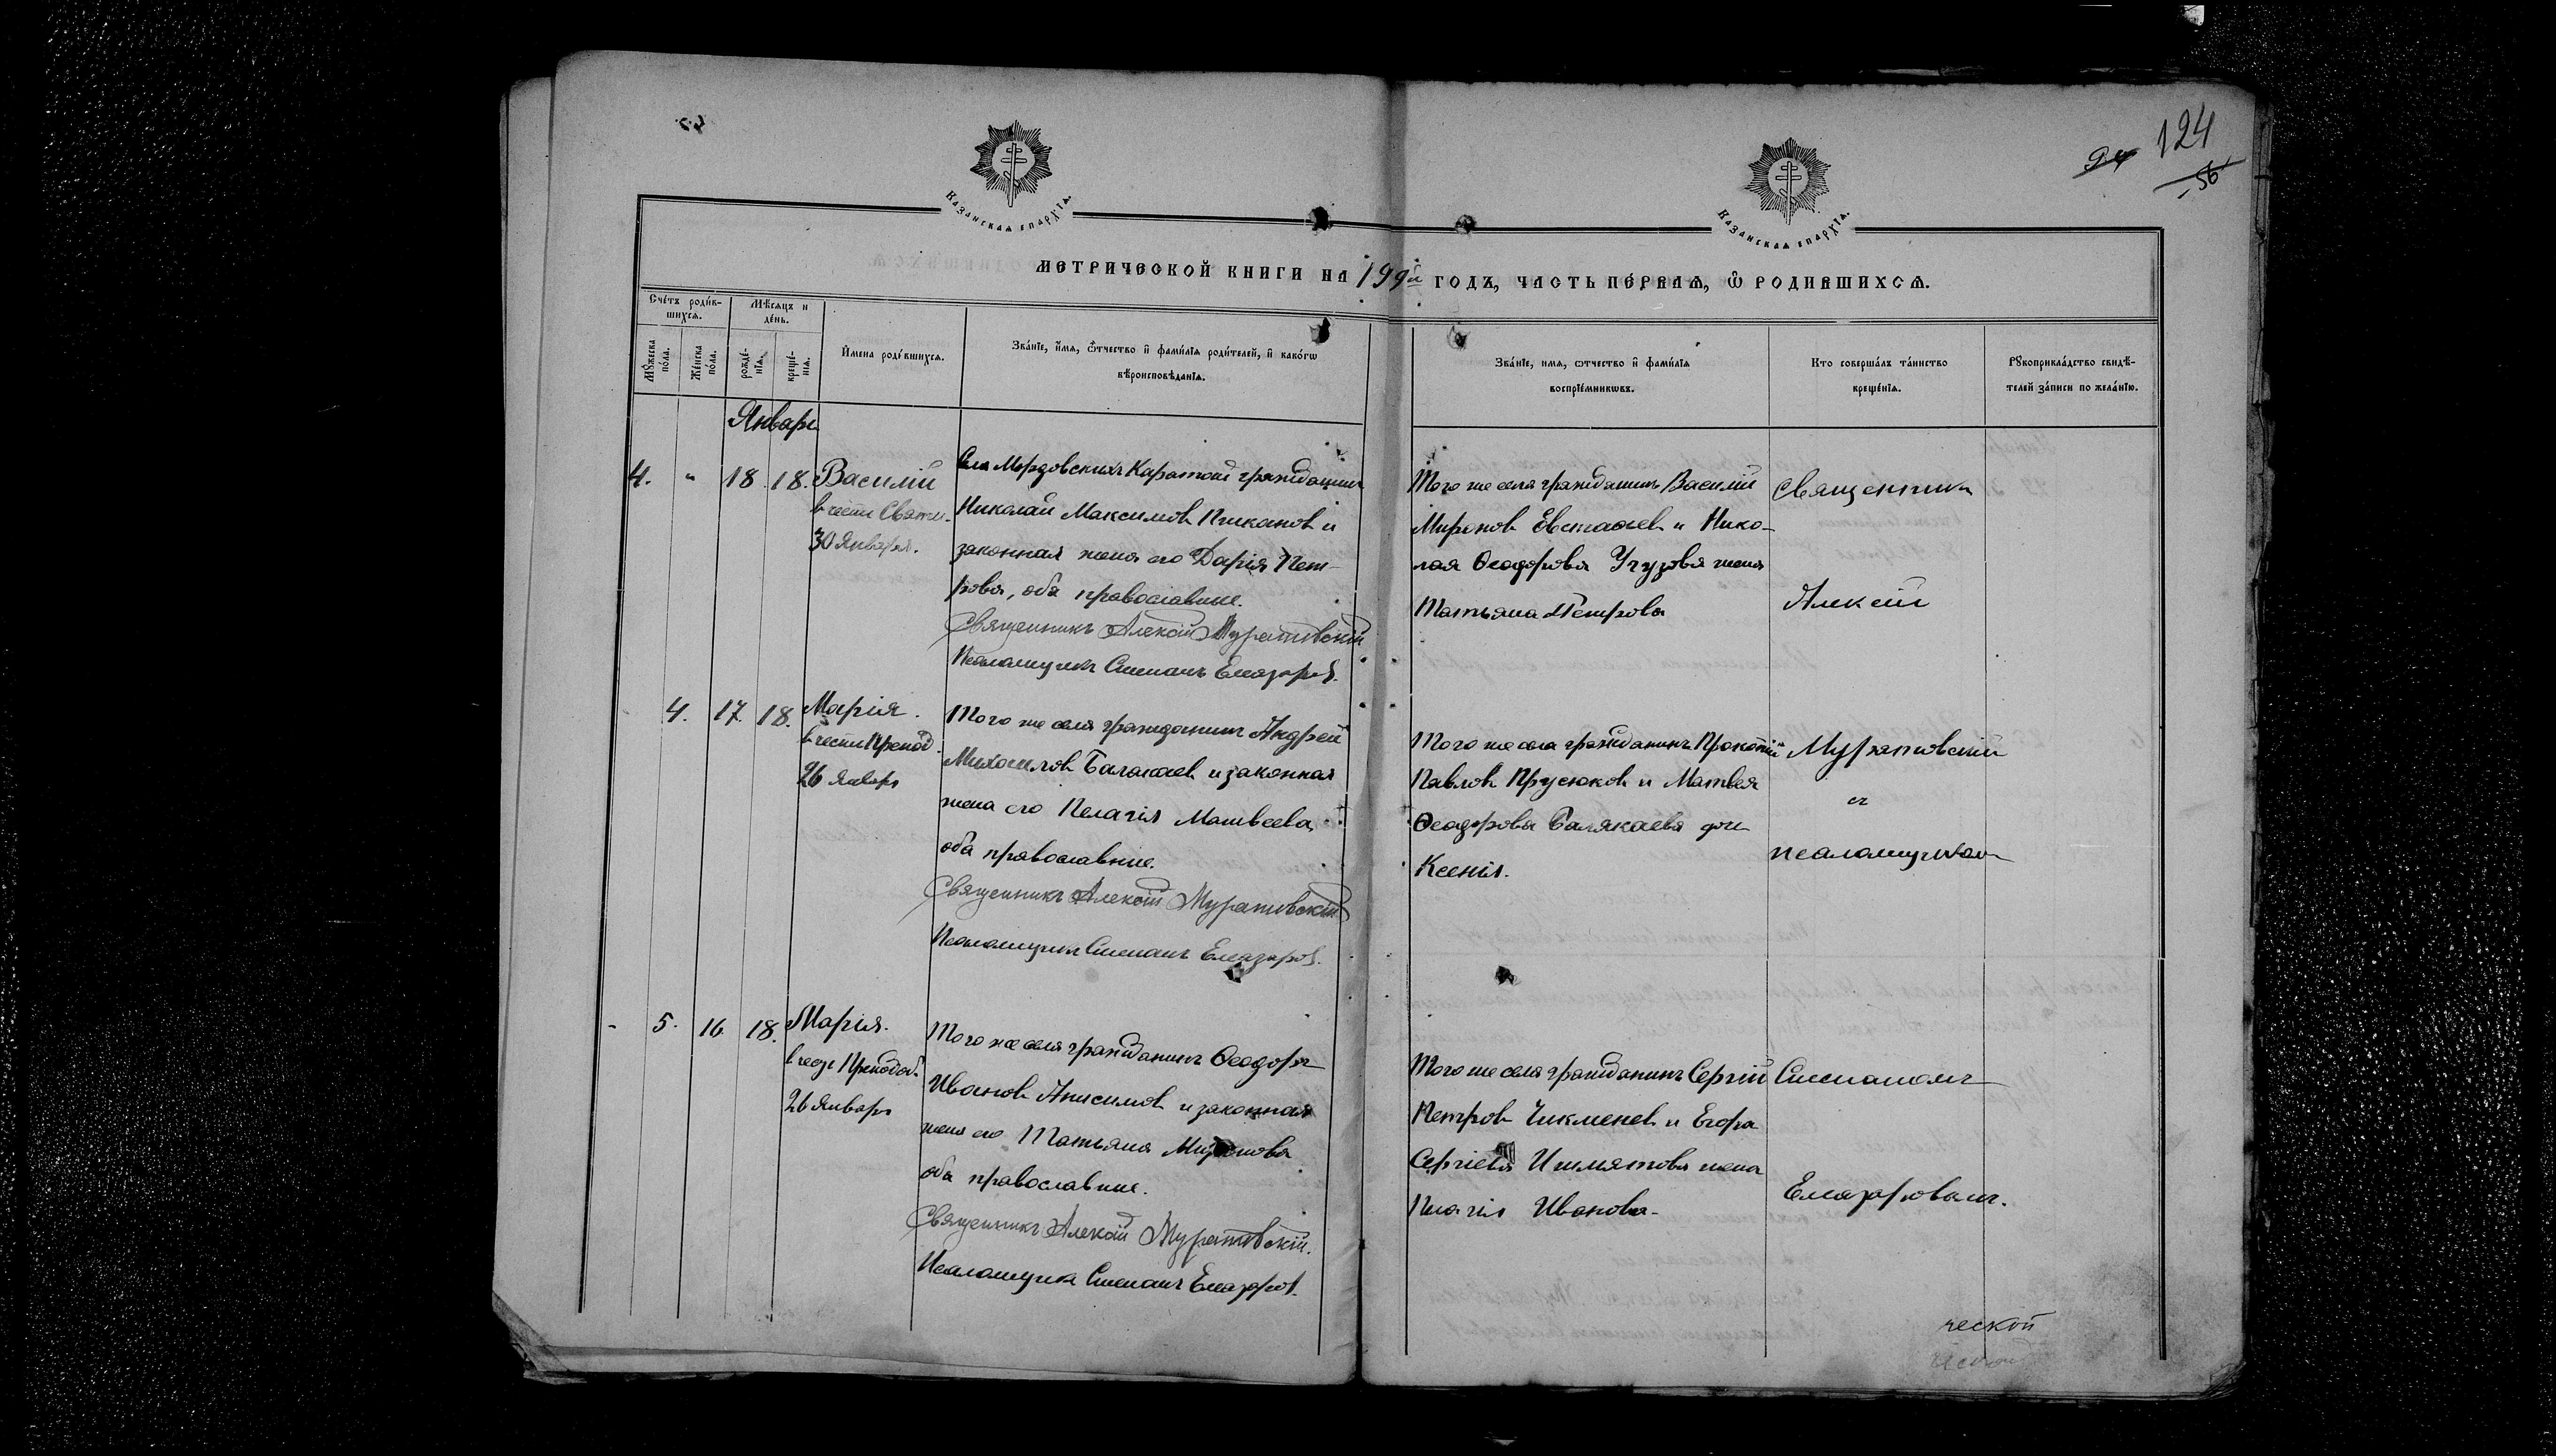 124
94
56
Казанская епархїѧ.
Казанская епархїѧ.
МЕТРИЧЕСКОЙ КНИГИ НА 199й ГОДЪ, ЧАСТЬ ПЕ́РВАѦ, Ѽ РОДИВШИХСѦ.
Сче́тъ роди́в-
шихсѧ.
Мѣ́сяцъ и
де́нь.
Мꙋ́жеска
по́ла.
Же́нска
по́ла.
рожде́-
нїѧ.
креще́-
нїѧ.
И҆мена роди́вшихсѧ.
Зва́нїе, и҆мѧ, ѻ҆́тчество и҆ фами́лїѧ роди́телей, и҆ како́гѡ
вѣроисповѣ́данїѧ.
Зва́нїе, имѧ, ѡтчество и҆ фами́лїѧ
воспрїе́мникѡвъ.
Кто соверша́лъ та́инство
креще́нїѧ.
Рꙋкоприкла́дство свидѣ́-
телей за́писи по жела́нїю.
Январь
4. " 18. 18. Василій
в честь Святи-
30 Января.
Села Мордовскихъ Каратай гражданинъ
Николай Максимов Пиканов и
законная жена его Дарія Пет-
рова, оба православные.
Священникъ Алексій Муратовскій
Псаломщикъ Степанъ Елеазаров.
Того же села гражданинъ Василій
Миронов Евстафьев и Нико-
лая Ѳеодорова Учузова жена
Татьяна Петрова
Священник
Алексей
- 4. 17. 18. Марія.
в честь Препод.
26 Январь
Того же села гражданинъ Андрей
Михаилов Балакаев и законная
жена его Пелагія Матвеева,
оба православные.
Священникъ Алексій Муратовскій
Псаломщикъ Степанъ Елеазаров.
Того же села гражданинъ Прокопій
Павлов Прусюков и Матвея
Ѳеодорова Балакаева дочь
Ксенія.
Муратовскій
съ
псаломщиком
- 5. 16. 18. Марія.
в честь Преподоб.
26 Январь
Того же села гражданинъ Ѳеодоръ
Иванов Анисимов и законная
жена его Татьяна Миронова
оба православные.
Священникъ Алексій Муратовскій.
Псаломщикъ Степанъ Елеазаров.
Того же села гражданинъ Сергій
Петров Чикменев и Егора
Сергіева Ишматова жена
Пелагія Иванова-
Степаномъ
Елеазаровымъ.
ческой